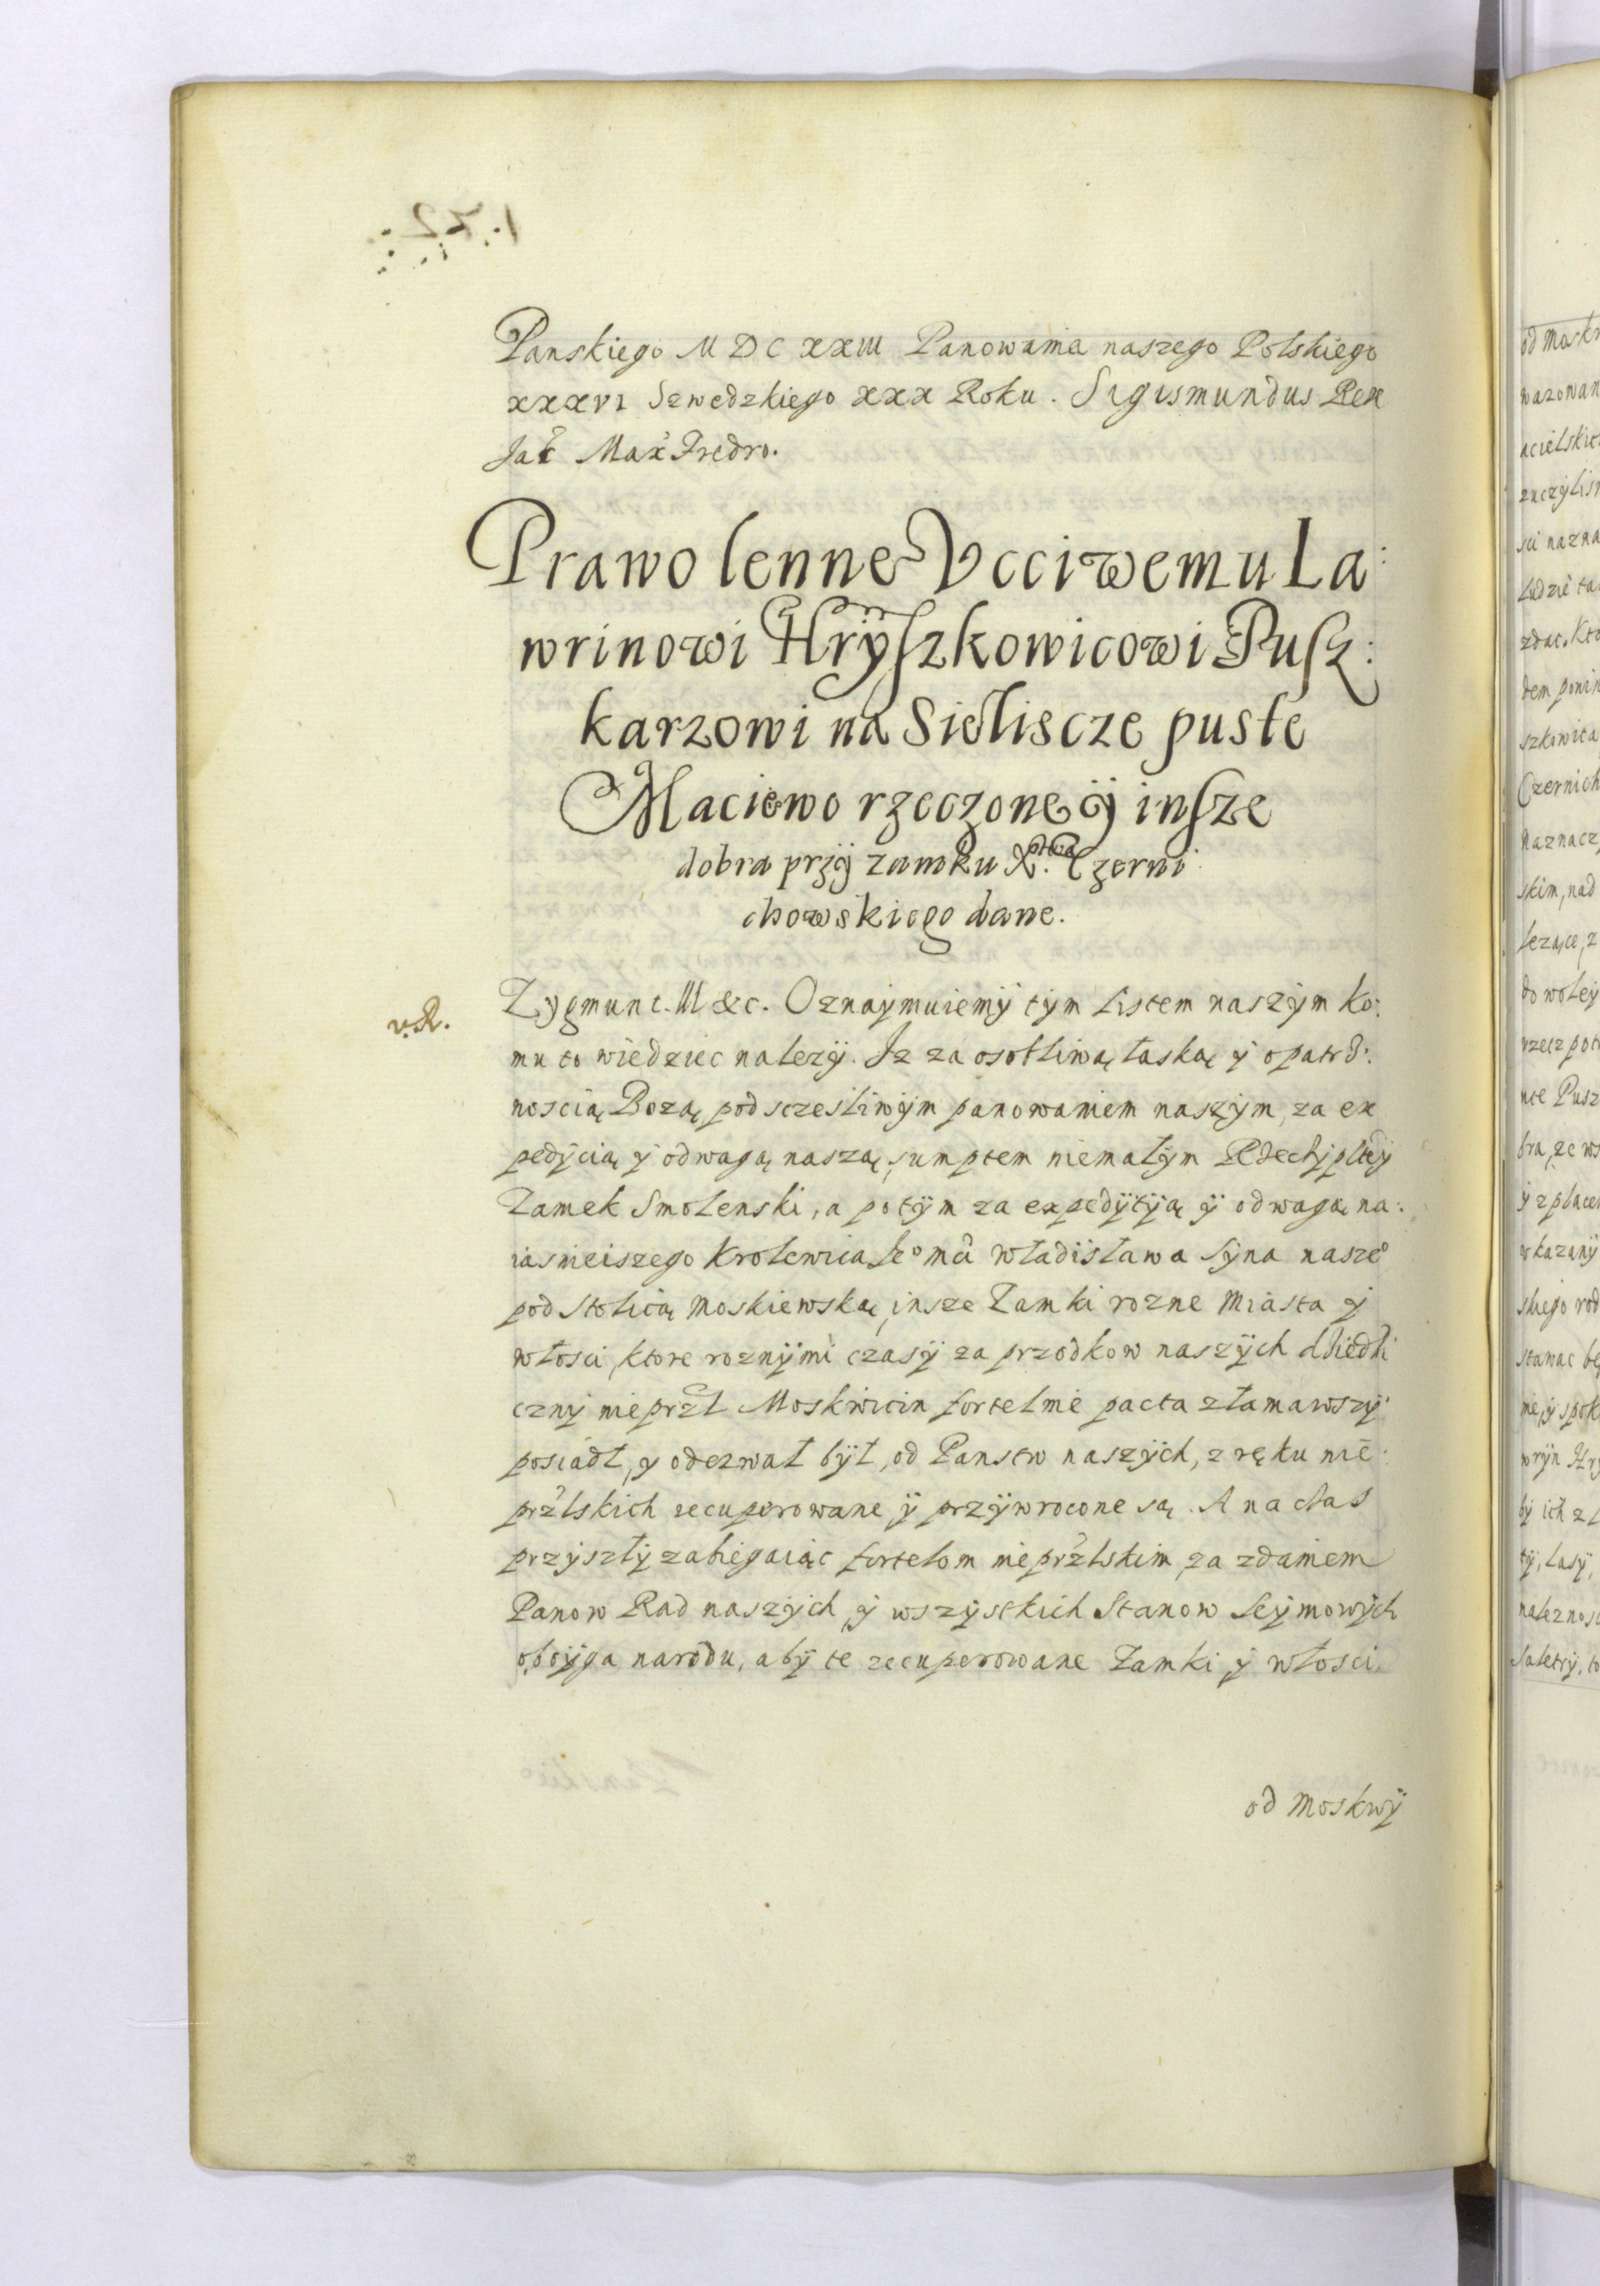 Panskiego MDCXXIII Panowania naszego Polskiego
xxxvi Szwedzkiego xxx Roku. Sigismundus Rex
Jak Max Fredro.
Prawo lenne Vcciwemu La:
wrinowi Hryszkowicowi Pusz:
karzowi na Siedliscze puste
Maciewo rzeczone ÿ insze
dobra przÿ zamku X.stwa Czerni
chowskiego dane.
v. R.
Zygmunt III &c. Oznaymuiemÿ tÿm listem naszÿm ko:
mu to wiedziec nalezÿ. Iz za osobliwą łaską ÿ opatrz:
noscią Bozą, pod sczesliwÿm panowaniem naszÿm, za ex
pedÿcią ÿ odwagą naszą, sumptem niemałÿm Rzechÿpltey
Zamek Smolenski, a potÿm za expedÿtÿą ÿ odwagą na:
iasnieiszego Krolewica Je° mci Władisława Sÿna nasze°
pod Stolicą Moskiewską, insze Zamki rozne Miasta ÿ
włosci, ktore roznÿmi czasÿ za przodkow naszÿch dziedzi
cznÿ nieprzl Moskwicin fortelnie pacta złamawszÿ
posiadł, ÿ oderwał bÿł, od Panstw naszÿch, z ręku nie:
przlskich recuperowane ÿ przÿwrocone są. A na czas
przÿszłÿ zabiegaiąc fortelom nieprzlskim, za zdaniem
Panow Rad naszÿch ÿ wszÿstkich Stanow Seÿmowÿch
oboÿga narodu, abÿ te recuperowane Zamki ÿ włosci
od Moskwÿ